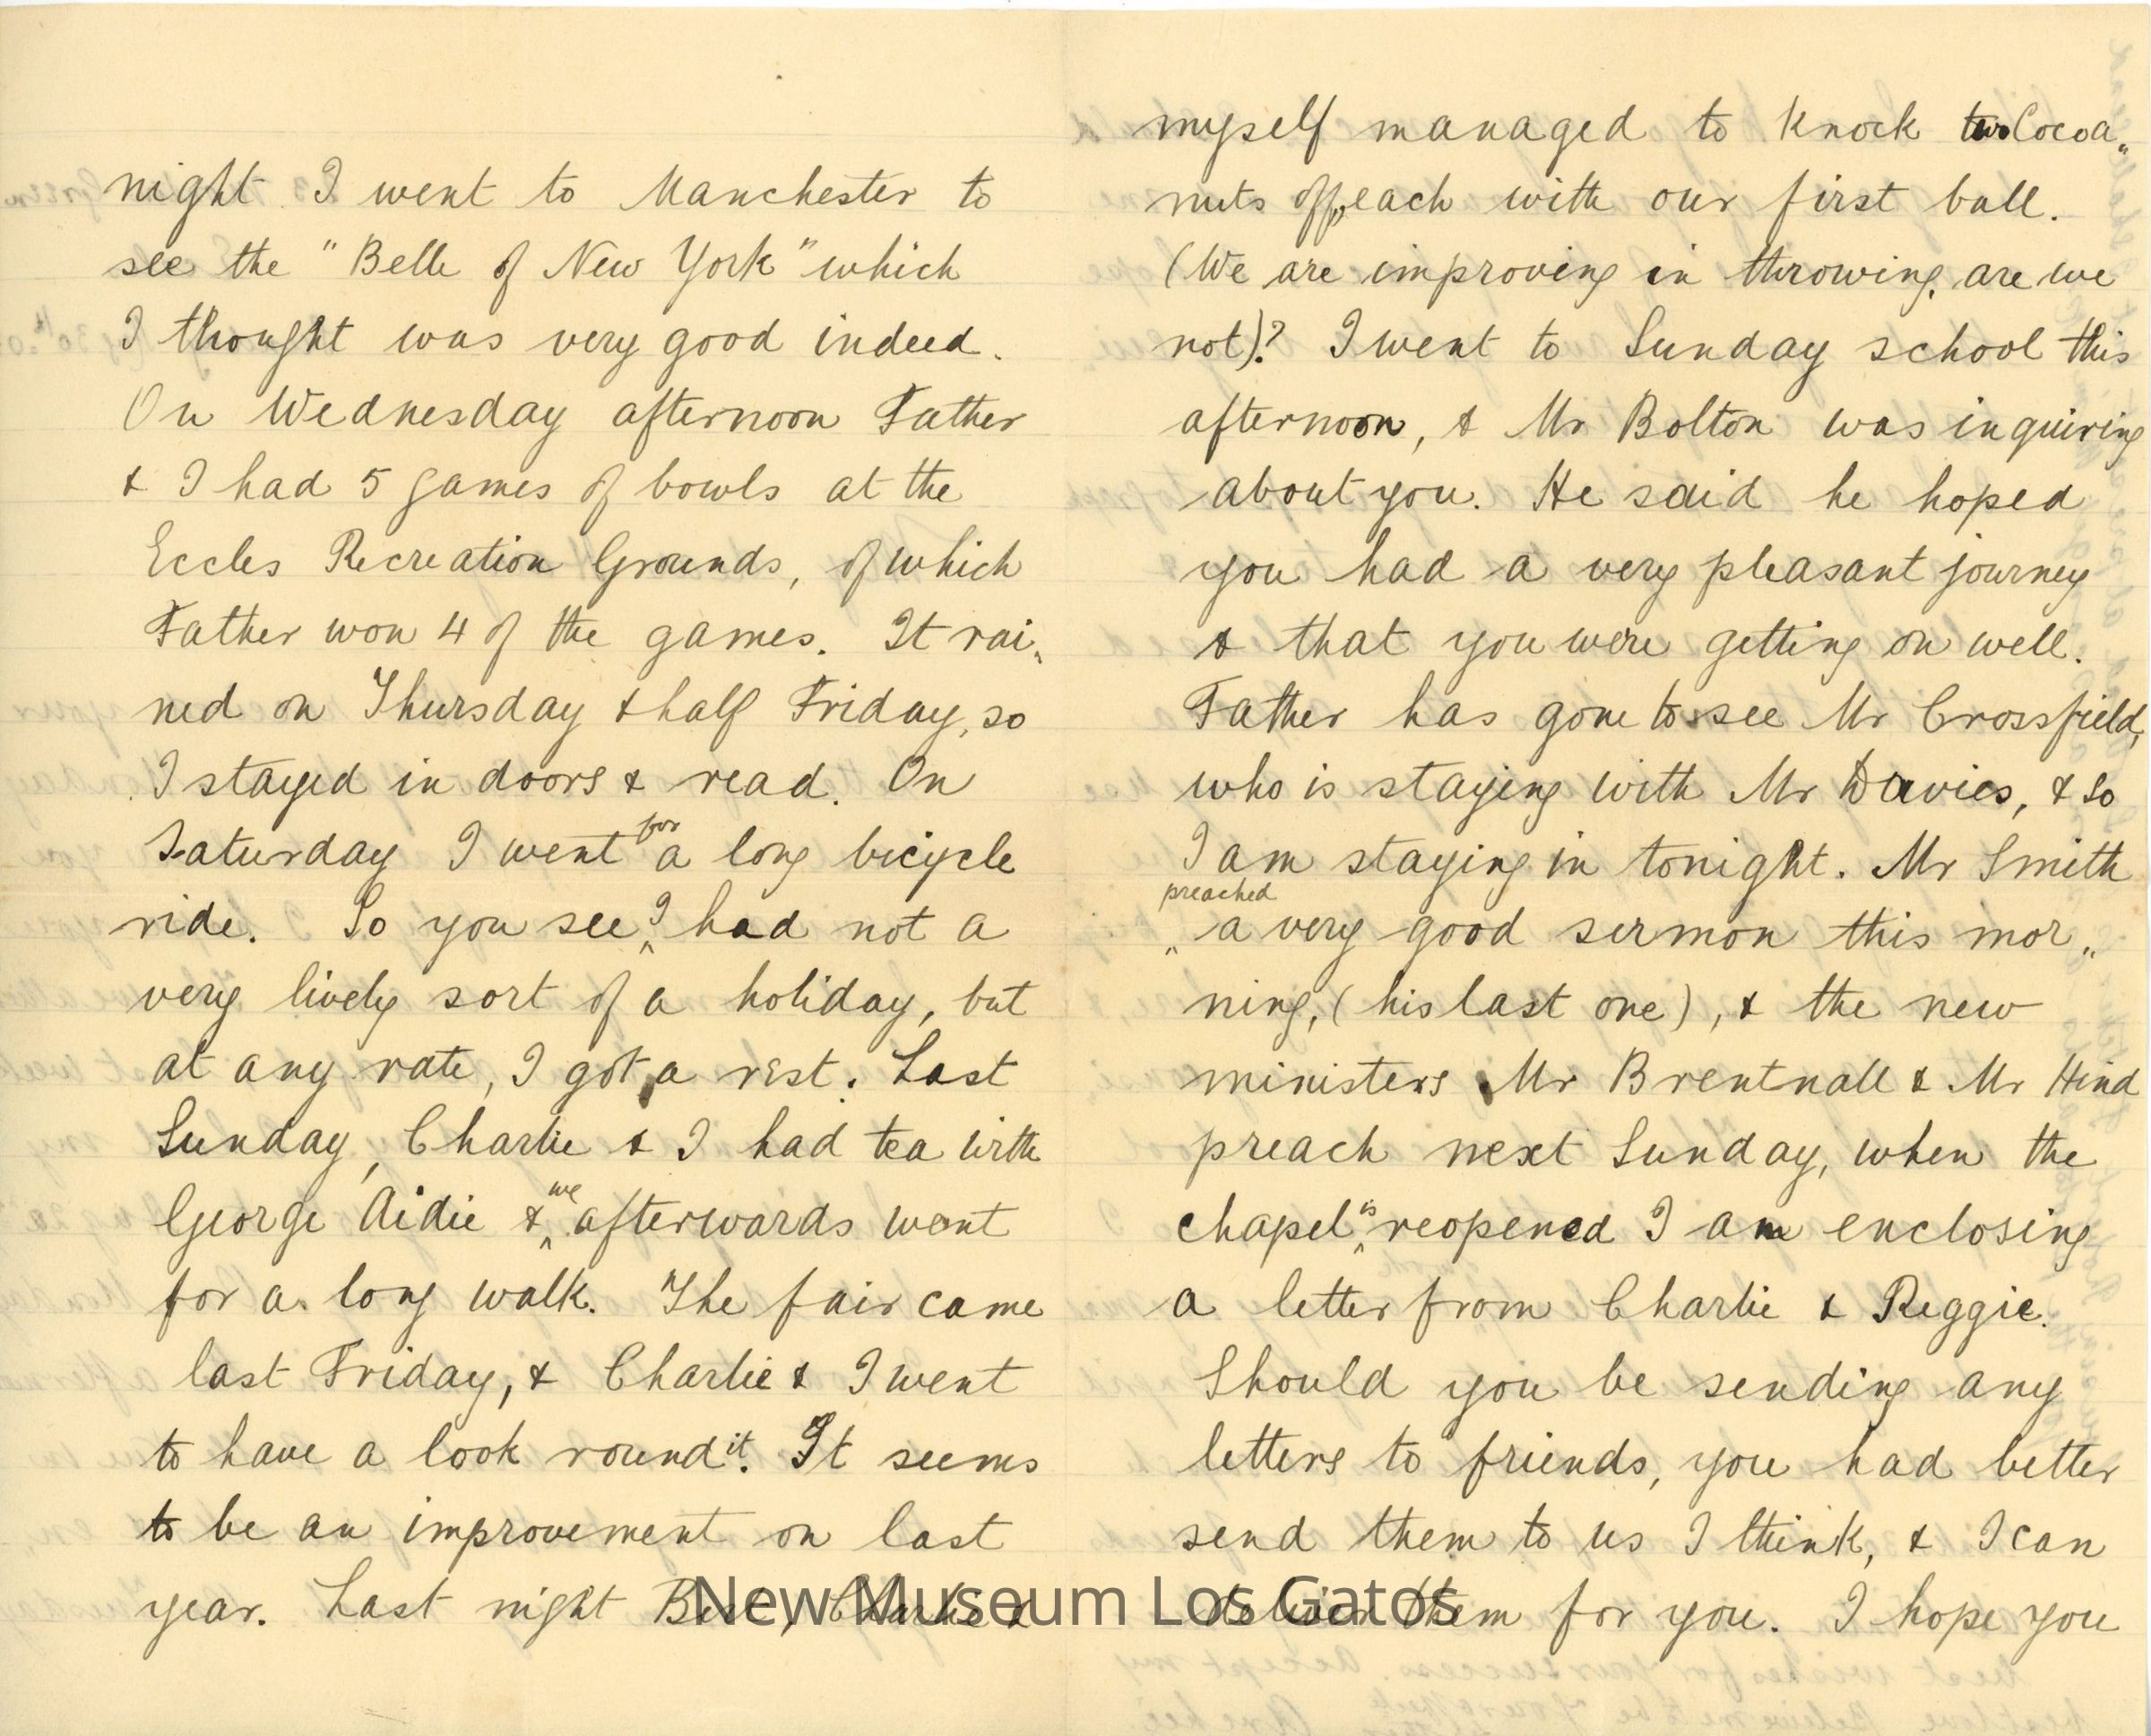 night I went to Manchester to
see the "Belle of New York" which
I thought was very good indeed.
On Wednesday afternoon Father
& I had 5 games of bowls at the
Eccles Recreation Grounds, of which
Father won 4 of the games. It rai„
ned on Thursday & half Friday, so
I stayed in doors & read. On
Saturday I went for a long bicycle
ride. So you see I had not a
very lively sort of a holiday, but
at any rate, I got a rest. Last
Sunday, Charlie & I had tea with
George Aidie & we afterwards went
for a long walk. The fair came
last Friday, & Charlie & I went
to have a look round it. It seems
to be an improvement on last
year. Last night Bert, Charlie &
myself managed to knock two Cocoa„
nuts off, each with our first ball.
(We are improving in throwing, are we
not)? I went to Sunday school this
afternoon, & Mr Bolton was inquiring
about you. He said he hoped
you had a very pleasant journey
& that you were getting on well.
Father has gone to see Mr Crossfield,
who is staying with Mr Davies, & so
I am staying in tonight. Mr Smith
preached a very good sermon this mor„
ning, (his last one), & the new
ministers Mr Brentnall & Mr Hind
preach next Sunday, when the
chapel is reopened I am enclosing
a letter from Charlie & Reggie.
Should you be sending any
letters to friends, you had better
send them to us I think, & I can
deliver them for you. I hope you
New Museum Los Gatos